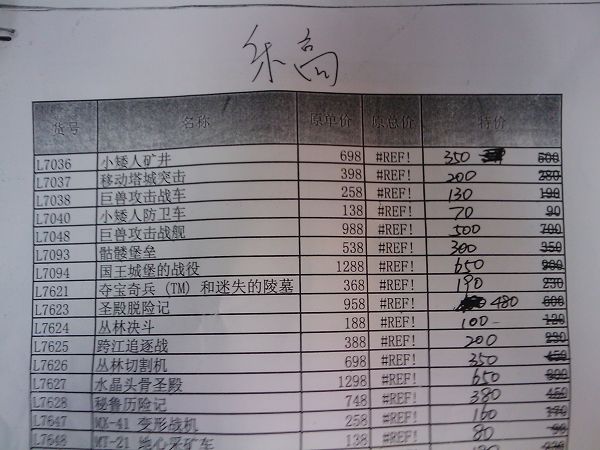 乐高
货号 名称 原单价 原总价 特价
L7036 小矮人矿井 698 #REF! 350 500
L7037 移动塔城突击 398 #REF! 200 280
L7038 巨兽攻击战车 258 #REF! 130 190
L7040 小矮人防卫车 138 #REF! 70 90
L7048 巨兽攻击战舰 988 #REF! 500 700
L7093 骷髅堡垒 538 #REF! 300 350
L7094 国王城堡的战役 1288 #REF! 650 900
L7621 夺宝奇兵 (TM) 和迷失的陵墓 368 #REF! 190 230
L7623 圣殿脱险记 958 #REF! 480 600
L7624 丛林决斗 188 #REF! 100 120
L7625 跨江追逐战 388 #REF! 200 230
L7626 丛林切割机 698 #REF! 350 450
L7627 水晶头骨圣殿 1298 #REF! 650 800
L7628 秘鲁历险记 748 #REF! 380 450
L7647 MX-41 变形战机 258 #REF! 160 170
L7648 MT-21 地心采矿车 138 #REF! 80 90